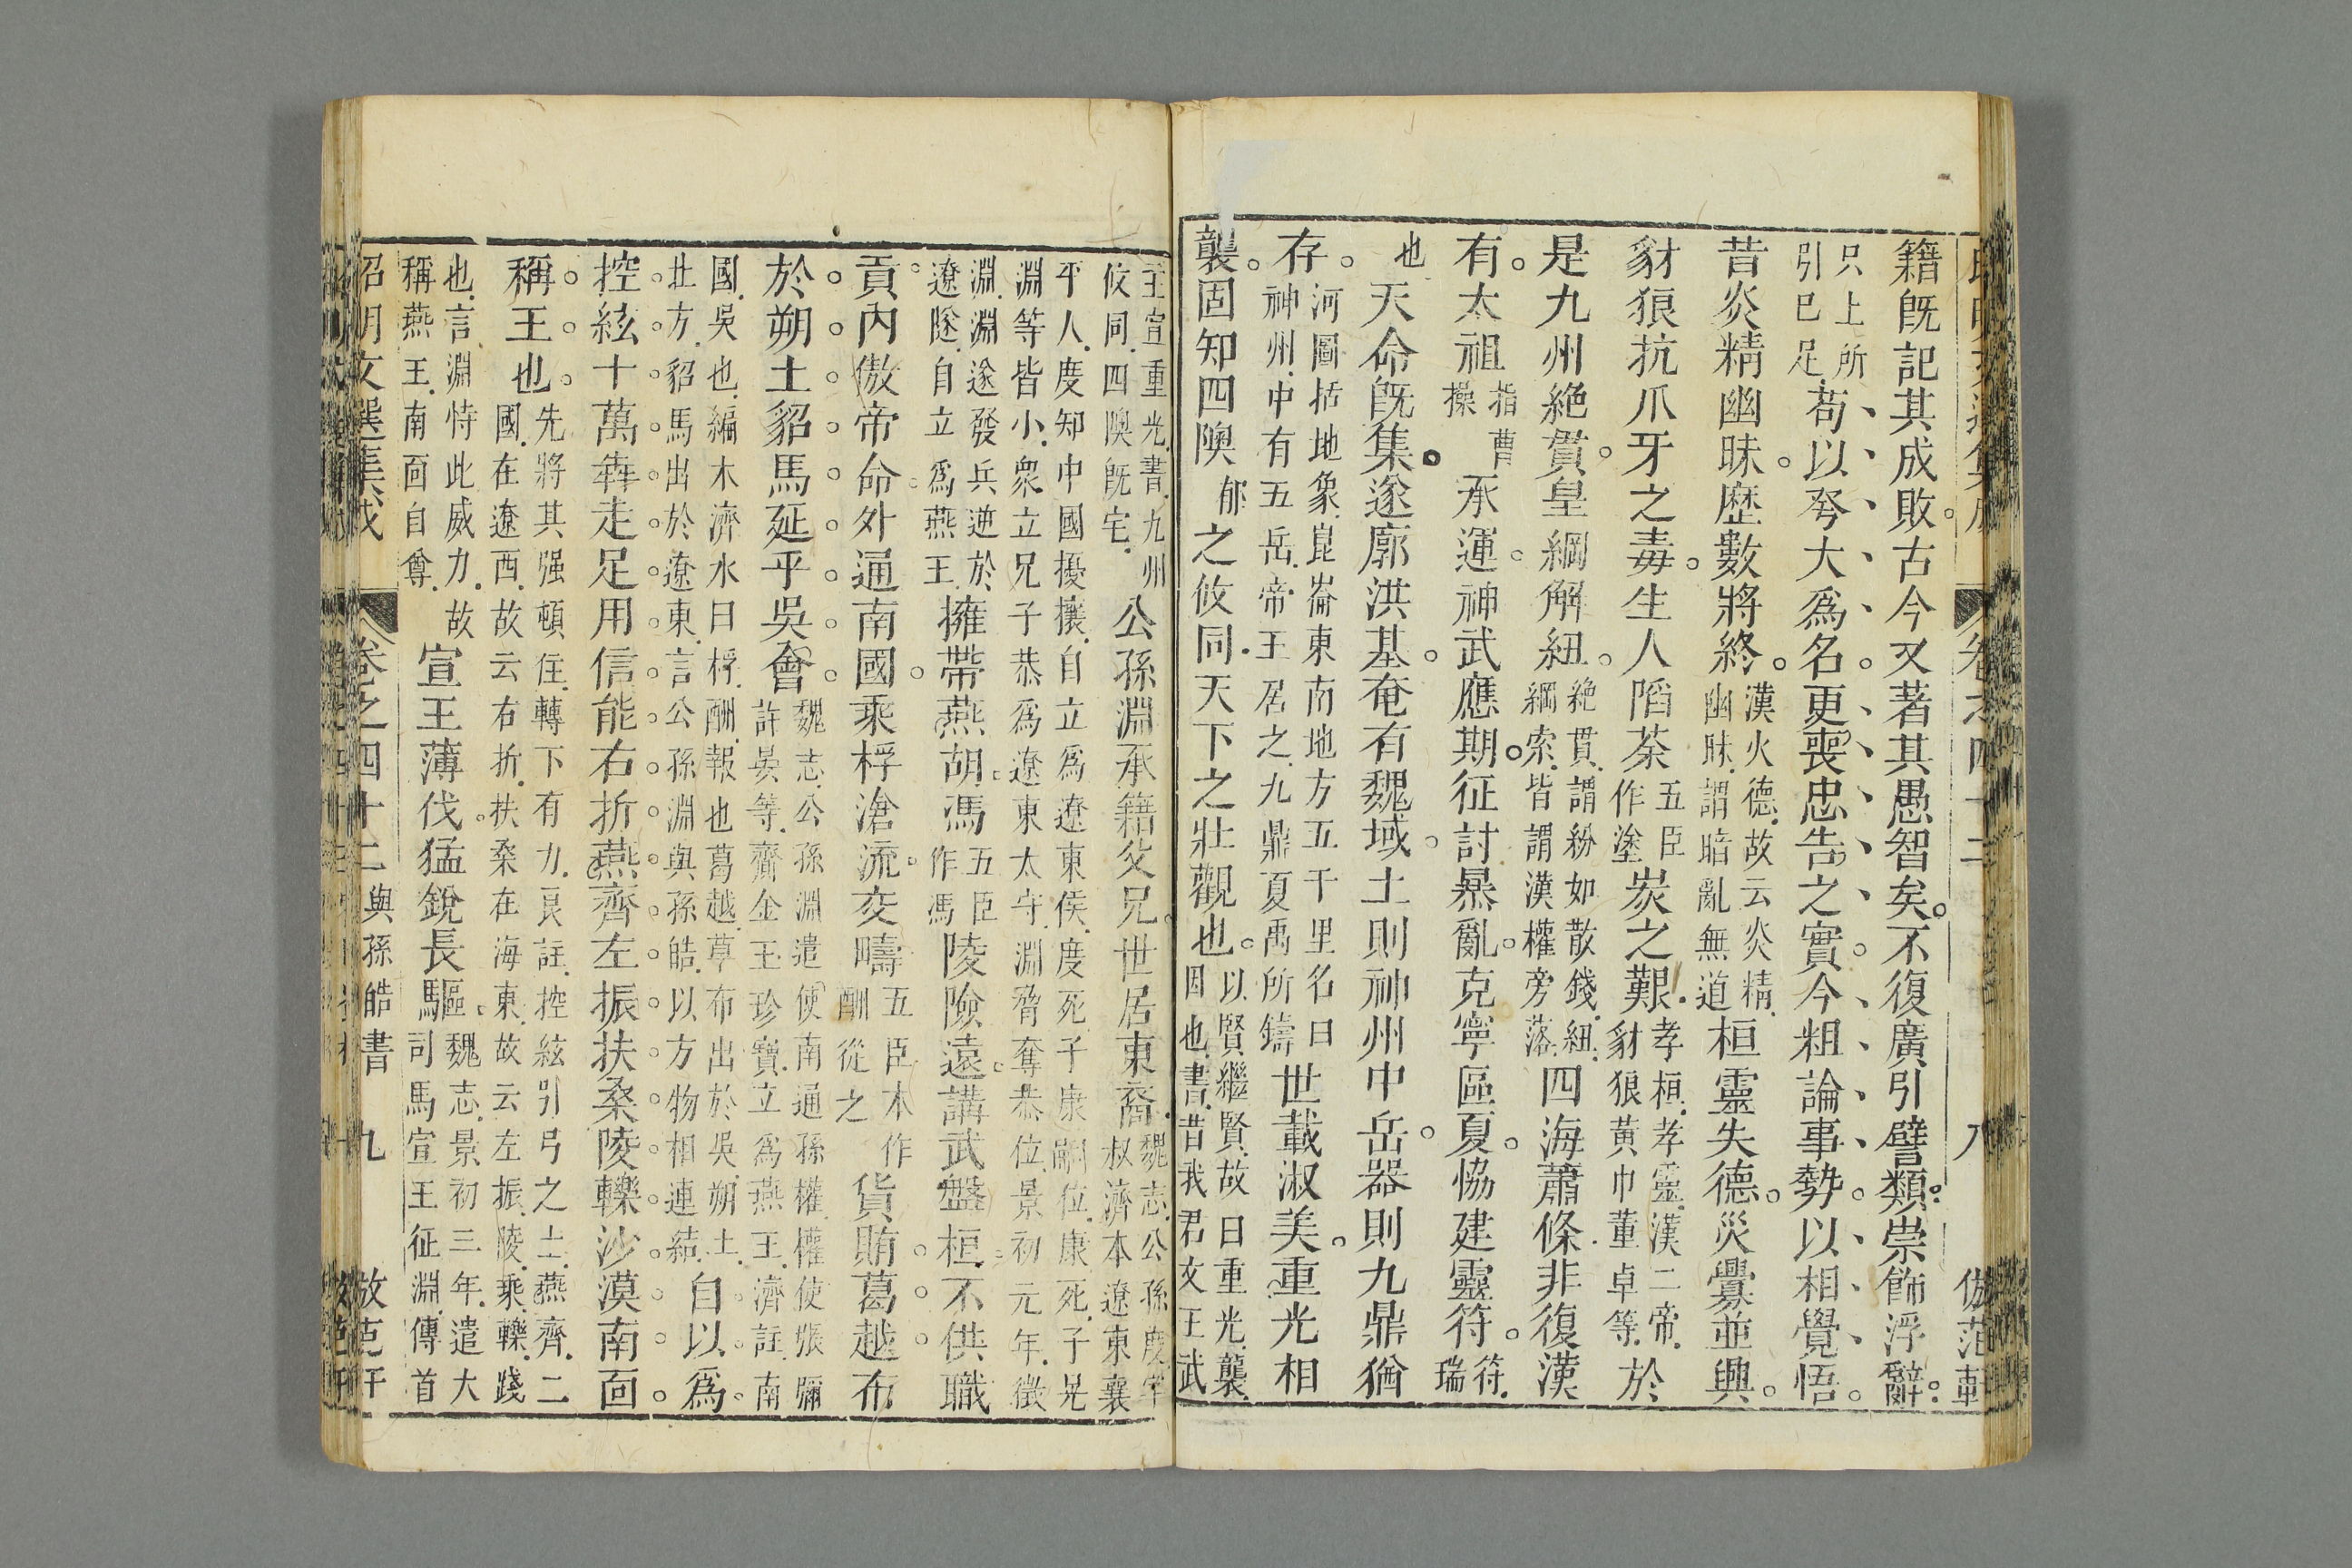 籍旣記其成敗古今又著其愚智矣不復廣引譬類崇飾浮辭
只上所引已足苟以夸大爲名更喪忠告之實今粗論事勢以相覺悟
昔炎精幽昧歷數將終漢火德故云炎精幽昧謂暗亂無道桓靈失德災釁並興
豺狼抗爪牙之毒生人陷荼五臣作塗炭之艱孝桓孝靈漢二帝豺狼黃巾董卓等於
是九州絶貫皇綱解紐絶貫謂紛如散錢紐綱索皆謂漢權旁落四海蕭條非復漢
有太祖指曹操承運神武應期征討暴亂克寧區夏恊建靈符符瑞
也天命旣集遂廓洪基奄有魏域土則神州中岳器則九鼎猶
存河圖括地象崑崙東南地方五千里名曰神州中有五岳帝王居之九鼎夏禹所鑄世載淑美重光相
襲固知四隩郁之攸同天下之壯觀也以賢繼賢故曰重光襲因也書昔我君文王武
王宣重光書九州攸同四隩旣宅公孫淵承籍父兄世居東裔魏志公孫度字叔濟本遼東襄
平人度知中國擾攘自立爲遼東侯度死子康嗣位康死子晃淵等皆小衆立兄子恭爲遼東太守淵脅奪恭位景初元年徵
淵淵遂發兵逆於遼隧自立爲燕王擁帶燕胡馮五臣作馮陵險遠講武盤桓不供職
貢内傲帝命外通南國乘桴滄流交疇五臣本作酬從之貨賄葛越布
於朔土貂馬延乎吳會魏志公孫淵遣使南通孫權權使張彌許晏等齎金玉珍寶立爲燕王濟註南
國吳也編木濟水曰桴酬報也葛越草布出於吳朔土北方貂馬出於遼東言公孫淵與孫皓以方物相連結自以爲
控絃十萬犇走足用信能右折燕齊左振扶桑陵轢沙漠南面
稱王也先將其强頓住轉下有力良註控絃引弓之士燕齊二國在遼西故云右折扶桑在海東故云左振陵乘轢踐
也言淵恃此威力故稱燕王南面自尊宣王薄伐猛銳長驅魏志景初三年遣大司馬宣王征淵傳首
昭明文選集成 卷之四十二 與孫皓書 九 倣范軒